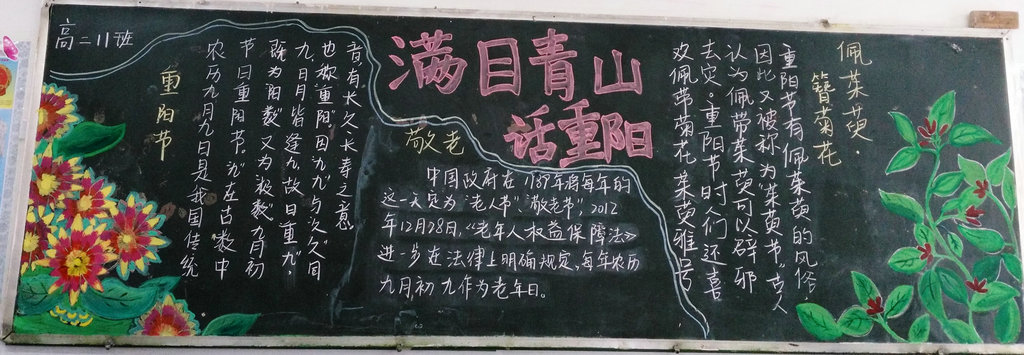 高二11班
重阳节
农历九月九日是我国传统
节日重阳节。"九"在古数中
既为"阳数"又为"极数",九月初
九,日月皆逢九,故曰"重九",
也称"重阳"因"九"与"久"同
音,有长久长寿之意。
满目青山
话重阳
敬老
中国政府在1989年将每年的
这一天定为"老人节""敬老节",2012
年12月28日,《老年人权益保障法》
进一步在法律上明确规定,每年农历
九月初九作为老年日。
佩茱萸,
簪菊花
重阳节有佩茱萸的风俗,
因此又被称为"茱萸节",古人
认为佩带茱萸可以辟邪
去灾。重阳节时们还喜
欢佩带菊花,茱萸雅号